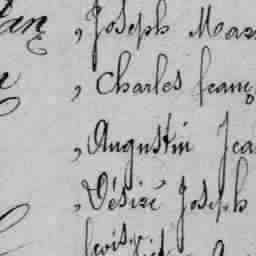 , Joseph Mar
, Charles franç
, Augustin Jea
, Désiré Joseph